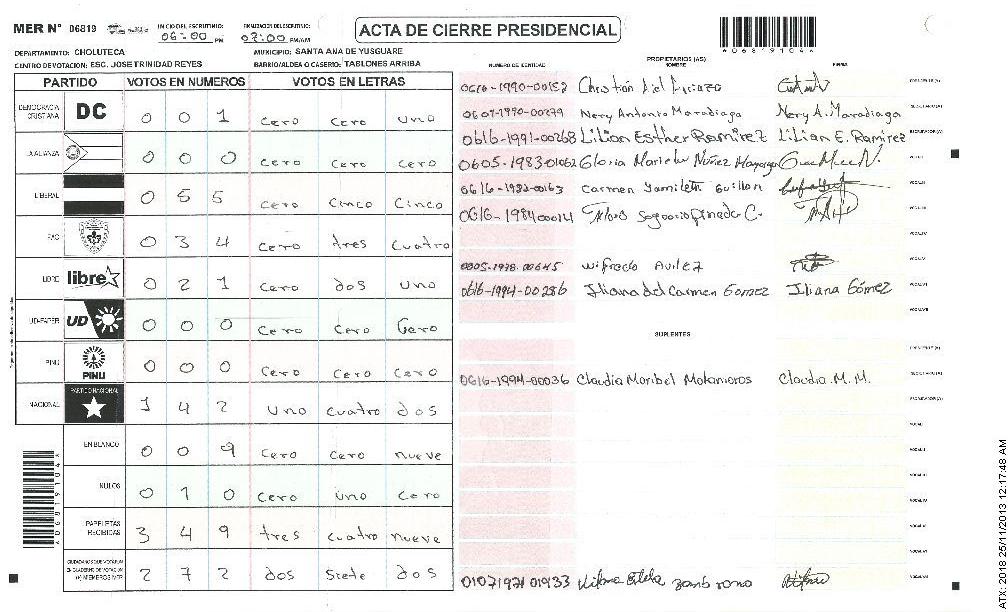 MER N° 06819 INICIO DEL ESCRUTINIO: 06:00 PM FINALIZACION DEL ESCRUTINIO: 07:00 PM/AM ACTA DE CIERRE PRESIDENCIAL
*06819104*
DEPARTAMENTO: CHOLUTECA MUNICIPIO: SANTA ANA DE YUSGUARE
CENTRO DE VOTACION: ESC. JOSE TRINIDAD REYES BARRIO/ALDEA O CASERIO: TABLONES ARRIBA
PARTIDO VOTOS EN NUMEROS VOTOS EN LETRAS
NUMERO DE IDENTIDAD PROPIETARIOS (AS) NOMBRE FIRMA
DEMOCRACIA CRISTIANA DC 0 0 1 Cero Cero uno
LA ALIANZA 0 0 0 Cero Cero Cero
LIBERAL 0 5 5 Cero Cinco Cinco
PAC 0 3 4 Cero tres Cuatro
LIBRE libre 0 2 1 Cero dos uno
UD-FAPER UD 0 0 0 Cero Cero Cero
PINU PINU 0 0 0 Cero Cero Cero
NACIONAL PARTIDO NACIONAL 1 4 2 uno cuatro dos
EN BLANCO 0 0 9 Cero Cero nueve
NULOS 0 1 0 Cero uno Cero
PAPELETAS RECIBIDAS 3 4 9 tres cuatro nueve
CIUDADANOS QUE VOTARON EN CUADERNO DE VOTACION (+) MIEMBROS MER 2 7 2 dos siete dos
0616-1990-00152 PRESIDENTE (A)
0607-1990-00299 Nery Antonio Maradiaga Nery A. Maradiaga SECRETARIO (A)
0616-1991-00268 Lilian Esther Ramirez Lilian E. Ramirez ESCRUTADOR (A)
0605-1983-01062 Gloria Nuñez VOCAL I
0616-1982-00163 Carmen Yamileth Guillen VOCAL II
0616-1984-00014 VOCAL III
VOCAL IV
Wifredo Avilez VOCAL V
0616-1994-00286 Iliana del Carmen Gomez Iliana Gómez VOCAL VI
VOCAL VII
SUPLENTES
PRESIDENTE (A)
0616-1994-00036 Claudia Maribel Matamoros Claudia. M. M. SECRETARIO (A)
ESCRUTADOR (A)
VOCAL I
VOCAL II
VOCAL III
VOCAL IV
VOCAL V
VOCAL VI
0107197101933 Zambrano VOCAL VII
*06819104*
ATX 2018 25/11/2013 12:17:48 AM